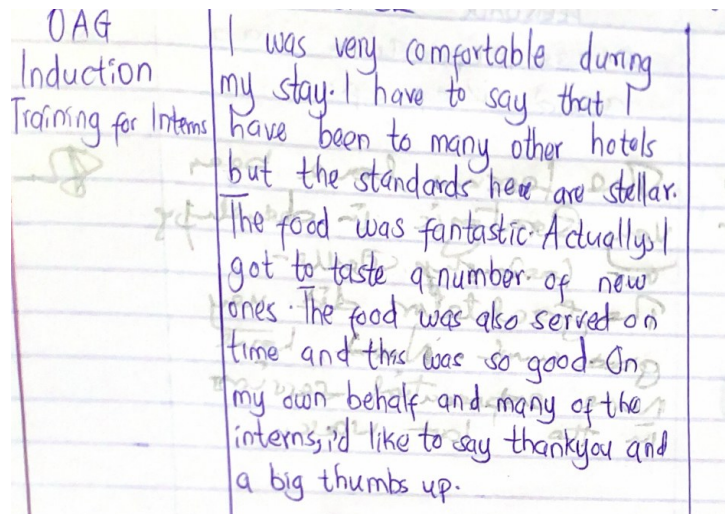 OAG
Induction
Training for Interns
I was very comfortable during
my stay. I have to say that I
have been to many other hotels
but the standards here are stellar.
The food was fantastic. Actually, I
got to taste a number of new
ones. The food was also served on
time and this was so good. On
my own behalf and many of the
interns, i'd like to say thankyou and
a big thumbs up.